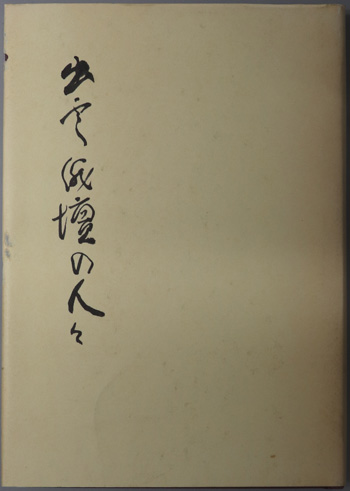 出雲俳壇の人々